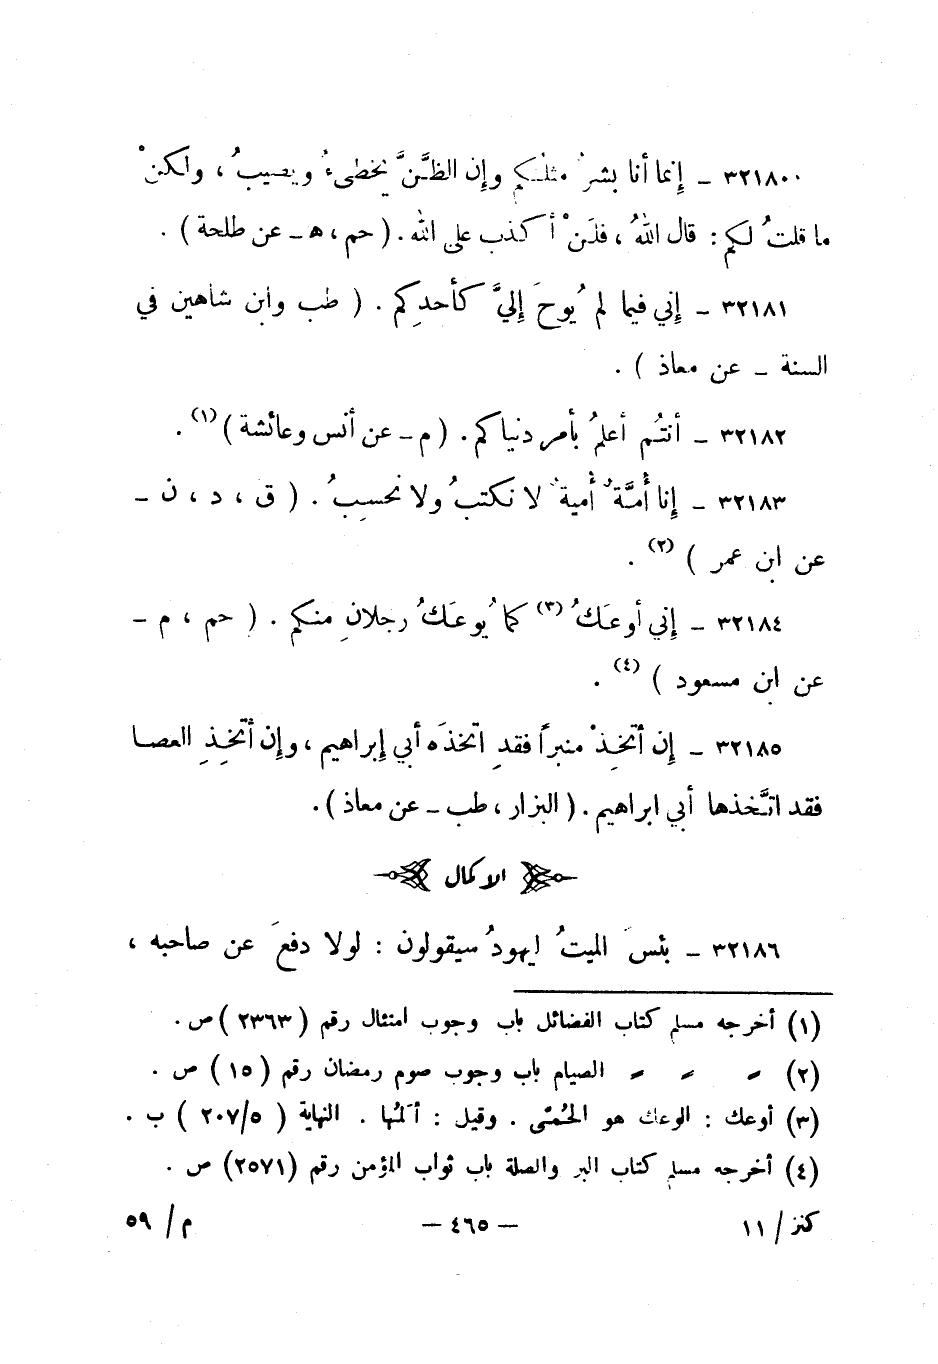 ٣٢١٨٠٠ - إنما أنا بشرٌ مثلكم وإن الظَّنَّ يخطىءُ ويصيبُ ، ولكنْ
ما قلتُ لكم : قال اللهُ ، فلَنْ أكذب على الله . ( حم ، هـ - عن طلحة ) .
٣٢١٨١ - إني فيما لم يُوحَ إليَّ كأحدِكم . ( طب وابن شاهين في
السنة - عن معاذ ) .
٣٢١٨٢ - أنتُم أعلمُ بأمر دنياكم . ( م - عن أنس وعائشة )(١) .
٣٢١٨٣ - إنا أُمَّةٌ أُميةٌ لا نكتبُ ولا نحسِبُ . ( ق ، د ، ن -
عن ابن عمر )(٢) .
٣٢١٨٤ - إني أوعَكُ(٣) كما يُوعَكُ رجلانِ منكم . ( حم ، م -
عن ابن مسعود )(٤) .
٣٢١٨٥ - إن أتخِذْ منبراً فقدِ اتخذَه أبي إبراهيم ، وإن أتخِذِ العصا
فقد اتَّخذها أبي ابراهيم . ( البزار ، طب - عن معاذ ) .
الاكمال
٣٢١٨٦ - بئسَ الميتُ ليهودُ سيقولون : لولا دفعَ عن صاحبه ،
(١) أخرجه مسلم كتاب الفضائل باب وجوب امتثال رقم ( ٢٣٦٣ ) ص .
(٢) 〃 〃 〃 الصيام باب وجوب صوم رمضان رقم ( ١٥ ) ص .
(٣) أوعك : الوعك هو الحُمّى . وقيل : ألمُها . النهاية ( ٢٠٧/٥ ) ب .
(٤) أخرجه مسلم كتاب البر والصلة باب ثواب المؤمن رقم (٢٥٧١) ص .
كنز / ١١ - ٤٦٥ - م / ٥٩